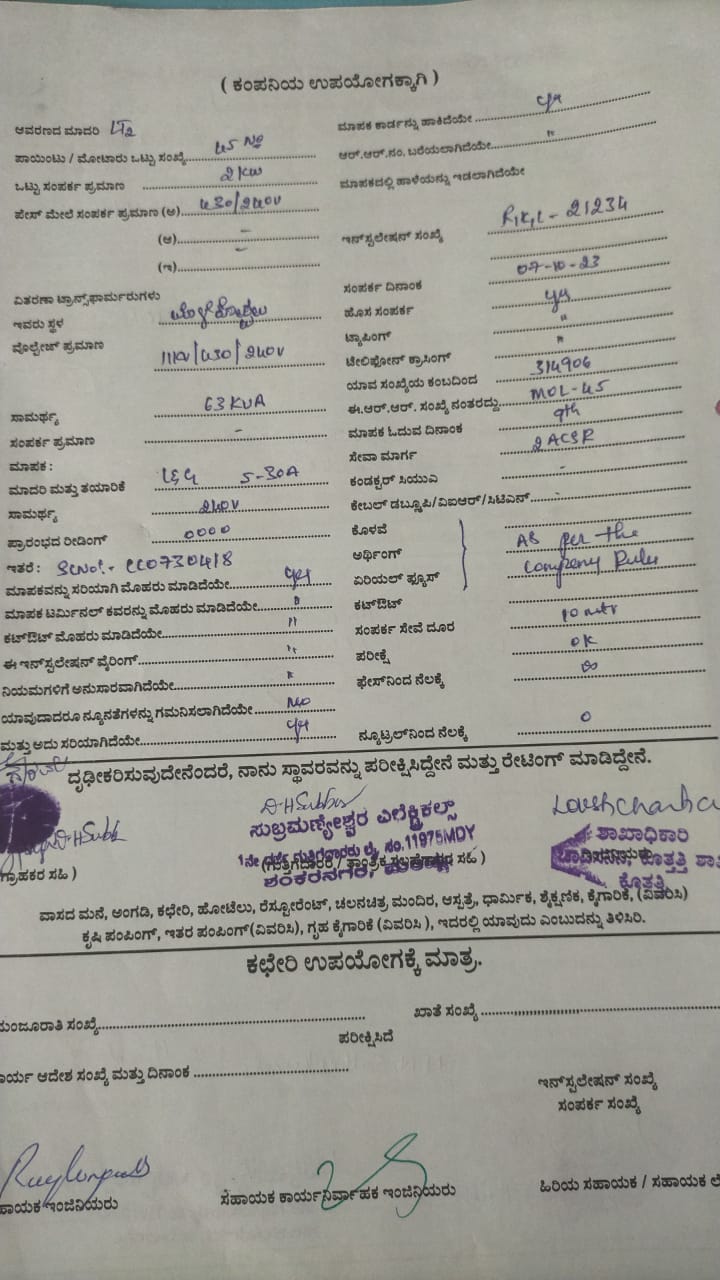 ( ಕಂಪನಿಯ ಉಪಯೋಗಕ್ಕಾಗಿ )
ಆವರಣದ ಮಾದರಿ LT2
ಪಾಯಿಂಟು / ಮೋಟಾರು ಒಟ್ಟು ಸಂಖ್ಯೆ 45 No
ಒಟ್ಟು ಸಂಪರ್ಕ ಪ್ರಮಾಣ 2 KW
ಪೇಸ್ ಮೇಲೆ ಸಂಪರ್ಕ ಪ್ರಮಾಣ (ಅ) 430/240V
(ಆ) -
(ಇ) -
ವಿತರಣಾ ಟ್ರಾನ್ಸ್‌ಫಾರ್ಮರುಗಳು
ಇವರು ಸ್ಥಳ
ವೋಲ್ಟೇಜ್ ಪ್ರಮಾಣ 11KV/430/240V
ಸಾಮರ್ಥ್ಯ 63 KVA
ಸಂಪರ್ಕ ಪ್ರಮಾಣ -
ಮಾಪಕ :
ಮಾದರಿ ಮತ್ತು ತಯಾರಿಕೆ L&G 5-30A
ಸಾಮರ್ಥ್ಯ 240V
ಪ್ರಾರಂಭದ ರೀಡಿಂಗ್ 0000
ಇತರೆ : SL No:- CC0730418
ಮಾಪಕವನ್ನು ಸರಿಯಾಗಿ ಮೊಹರು ಮಾಡಿದೆಯೇ yes
ಮಾಪಕ ಟರ್ಮಿನಲ್ ಕವರನ್ನು ಮೊಹರು ಮಾಡಿದೆಯೇ "
ಕಟ್‌ಔಟ್ ಮೊಹರು ಮಾಡಿದೆಯೇ "
ಈ ಇನ್‌ಸ್ಟಲೇಷನ್ ವೈರಿಂಗ್ "
ನಿಯಮಗಳಿಗೆ ಅನುಸಾರವಾಗಿದೆಯೇ "
ಯಾವುದಾದರೂ ನ್ಯೂನತೆಗಳನ್ನು ಗಮನಿಸಲಾಗಿದೆಯೇ No
ಮತ್ತು ಅದು ಸರಿಯಾಗಿದೆಯೇ yes
ಮಾಪಕ ಕಾರ್ಡನ್ನು ಹಾಕಿದೆಯೇ yes
ಆರ್.ಆರ್.ನಂ. ಬರೆಯಲಾಗಿದೆಯೇ "
ಮಾಪಕದಲ್ಲಿ ಹಾಳೆಯನ್ನು ಇಡಲಾಗಿದೆಯೇ
ಇನ್‌ಸ್ಟಲೇಷನ್ ಸಂಖ್ಯೆ R,K,L - 21234
ಸಂಪರ್ಕ ದಿನಾಂಕ 07-10-23
ಹೊಸ ಸಂಪರ್ಕ yes
ಟ್ಯಾಪಿಂಗ್ "
ಟೆಲಿಫೋನ್ ಕ್ರಾಸಿಂಗ್ "
ಯಾವ ಸಂಖ್ಯೆಯ ಕಂಬದಿಂದ 314906
ಈ.ಆರ್.ಆರ್. ಸಂಖ್ಯೆ ನಂತರದ್ದು MOL-45
ಮಾಪಕ ಓದುವ ದಿನಾಂಕ 9th
ಸೇವಾ ಮಾರ್ಗ 2 ACSR
ಕಂಡಕ್ಟರ್ ಸಿಯುವಿ -
ಕೇಬಲ್ ಡಬ್ಲ್ಯೂಪಿ/ವಿಐಆರ್/ಸಿಟಿಎನ್ -
ಕೊಳವೆ
ಅರ್ಥಿಂಗ್ As per the
ಏರಿಯಲ್ ಫ್ಯೂಸ್ Company Rules
ಕಟ್‌ಔಟ್
ಸಂಪರ್ಕ ಸೇವೆ ದೂರ 10 mtr
ಪರೀಕ್ಷೆ OK
ಫೇಸ್‌ನಿಂದ ನೆಲಕ್ಕೆ ∞
ನ್ಯೂಟ್ರಲ್‌ನಿಂದ ನೆಲಕ್ಕೆ 0
ದೃಢೀಕರಿಸುವುದೇನೆಂದರೆ, ನಾನು ಸ್ಥಾವರವನ್ನು ಪರೀಕ್ಷಿಸಿದ್ದೇನೆ ಮತ್ತು ರೇಟಿಂಗ್ ಮಾಡಿದ್ದೇನೆ.
ಸುಬ್ರಮಣ್ಯೇಶ್ವರ ಎಲೆಕ್ಟ್ರಿಕಲ್ಸ್
1ನೇ ದರ್ಜೆ ಗುತ್ತಿಗೆದಾರರು ಲೈ. ನಂ.11975MDY
ಶಂಕರನಗರ, ಮಂಡ್ಯ
ಶಾಖಾಧಿಕಾರಿ
ಕೊತ್ತತ್ತಿ
ಗ್ರಾಹಕರ ಸಹಿ )
ವಾಸದ ಮನೆ, ಅಂಗಡಿ, ಕಛೇರಿ, ಹೋಟೆಲು, ರೆಸ್ಟೋರೆಂಟ್, ಚಲನಚಿತ್ರ ಮಂದಿರ, ಆಸ್ಪತ್ರೆ, ಧಾರ್ಮಿಕ, ಶೈಕ್ಷಣಿಕ, ಕೈಗಾರಿಕೆ, (ವಿವರಿಸಿ)
ಕೃಷಿ ಪಂಪಿಂಗ್, ಇತರ ಪಂಪಿಂಗ್(ವಿವರಿಸಿ), ಗೃಹ ಕೈಗಾರಿಕೆ (ವಿವರಿಸಿ ), ಇದರಲ್ಲಿ ಯಾವುದು ಎಂಬುದನ್ನು ತಿಳಿಸಿರಿ.
ಕಛೇರಿ ಉಪಯೋಗಕ್ಕೆ ಮಾತ್ರ.
ಮಂಜೂರಾತಿ ಸಂಖ್ಯೆ
ಖಾತೆ ಸಂಖ್ಯೆ
ಪರೀಕ್ಷಿಸಿದೆ
ಕಾರ್ಯ ಆದೇಶ ಸಂಖ್ಯೆ ಮತ್ತು ದಿನಾಂಕ
ಇನ್‌ಸ್ಟಲೇಷನ್ ಸಂಖ್ಯೆ
ಸಂಪರ್ಕ ಸಂಖ್ಯೆ
ಸಹಾಯಕ ಇಂಜಿನಿಯರು
ಸಹಾಯಕ ಕಾರ್ಯನಿರ್ವಾಹಕ ಇಂಜಿನಿಯರು
ಹಿರಿಯ ಸಹಾಯಕ / ಸಹಾಯಕ